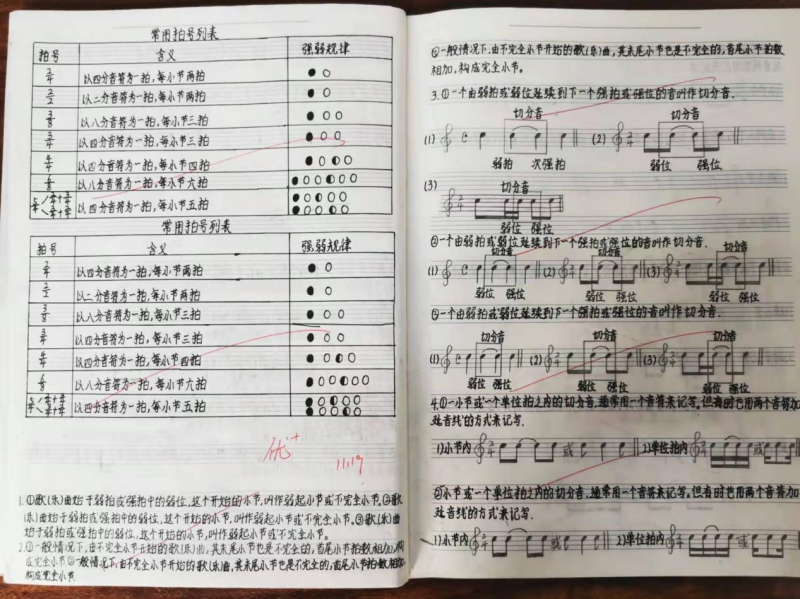 常用拍号列表
拍号 含义 强弱规律
2/4 以四分音符为一拍,每小节两拍 ● ○
2/2 以二分音符为一拍,每小节两拍 ● ○
3/8 以八分音符为一拍,每小节三拍 ● ○ ○
3/4 以四分音符为一拍,每小节三拍 ● ○ ○
4/4 以四分音符为一拍,每小节四拍
6/8 以八分音符为一拍,每小节六拍
以四分音符为一拍,每小节五拍
常用拍号列表
拍号 含义 强弱规律
2/4 以四分音符为一拍,每小节两拍 ● ○
2/2 以二分音符为一拍,每小节两拍 ● ○
3/8 以八分音符为一拍,每小节三拍 ● ○ ○
3/4 以四分音符为一拍,每小节三拍 ● ○ ○
4/4 以四分音符为一拍,每小节四拍
6/8 以八分音符为一拍,每小节六拍
以四分音符为一拍,每小节五拍
优+
11.19
1.①歌(乐)曲始于弱拍或强拍中的弱位,这个开始的小节,叫作弱起小节或不完全小节。②歌
(乐)曲始于弱拍或强拍中的弱位,这个开始的小节,叫作弱起小节或不完全小节。③歌(乐)曲
始于弱拍或强拍中的弱位,这个开始的小节,叫作弱起小节或不完全小节.
2.①一般情况下,由不完全小节开始的歌(乐)曲,其末尾小节也是不完全的,首尾小节拍数相加,构
成完全小节.②一般情况下,由不完全小节开始的歌(乐)曲,其末尾小节也是不完全的,首尾小节拍数相加,
构成完全小节
③一般情况下,由不完全小节开始的歌(乐)曲,其末尾小节也是不完全的,首尾小节拍数
相加,构成完全小节。
3.①一个由弱拍或弱位延续到下一个强拍或强位的音叫作切分音.
切分音 切分音
(1) (2)
弱拍 次强拍 弱位 强位
(3) 切分音
弱位 强位
②一个由弱拍或弱位延续到下一个强拍或强位的音叫作切分音.
切分音 切分音 切分音
(1) (2) (3)
弱位 强位 弱位 强位 弱位 强位
③一个由弱拍或弱位延续到下一个强拍或强位的音叫作切分音.
切分音 切分音 切分音
(1) (2) (3)
弱位 强位 弱位 强位 弱位 强位
4.①一小节或一个单位拍之内的切分音,通常用一个音符来记写.但有时也用两个音符加
延音线的方式来记写.
1)小节内 或 2)单位拍内 或
②小节或一个单位拍之内的切分音,通常用一个音符来记写。但有时也用两个音符加
延音线的方式来记写.
1)小节内 或 2)单位拍内 或